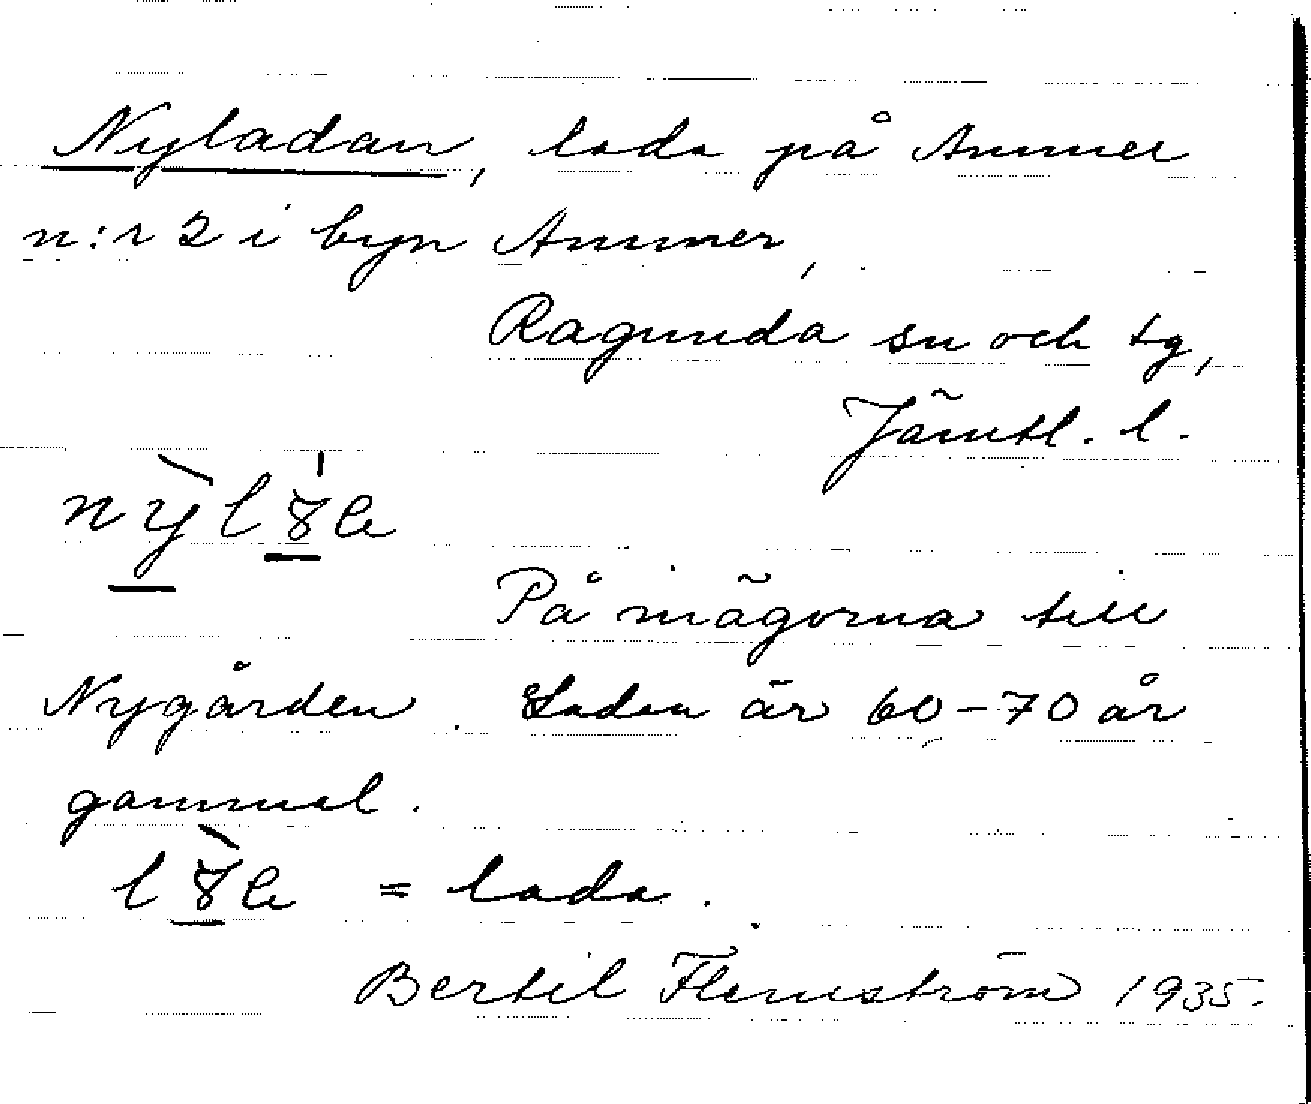 Nyladan, lada på Ammer
n:r 2 i byn Ammer,
Ragunda sn och tg,
Jämtl. l.
På mägorna till
Nygården. Ladan är 60-70 år
gammal.
= lada.
Bertil Flemström 1935.